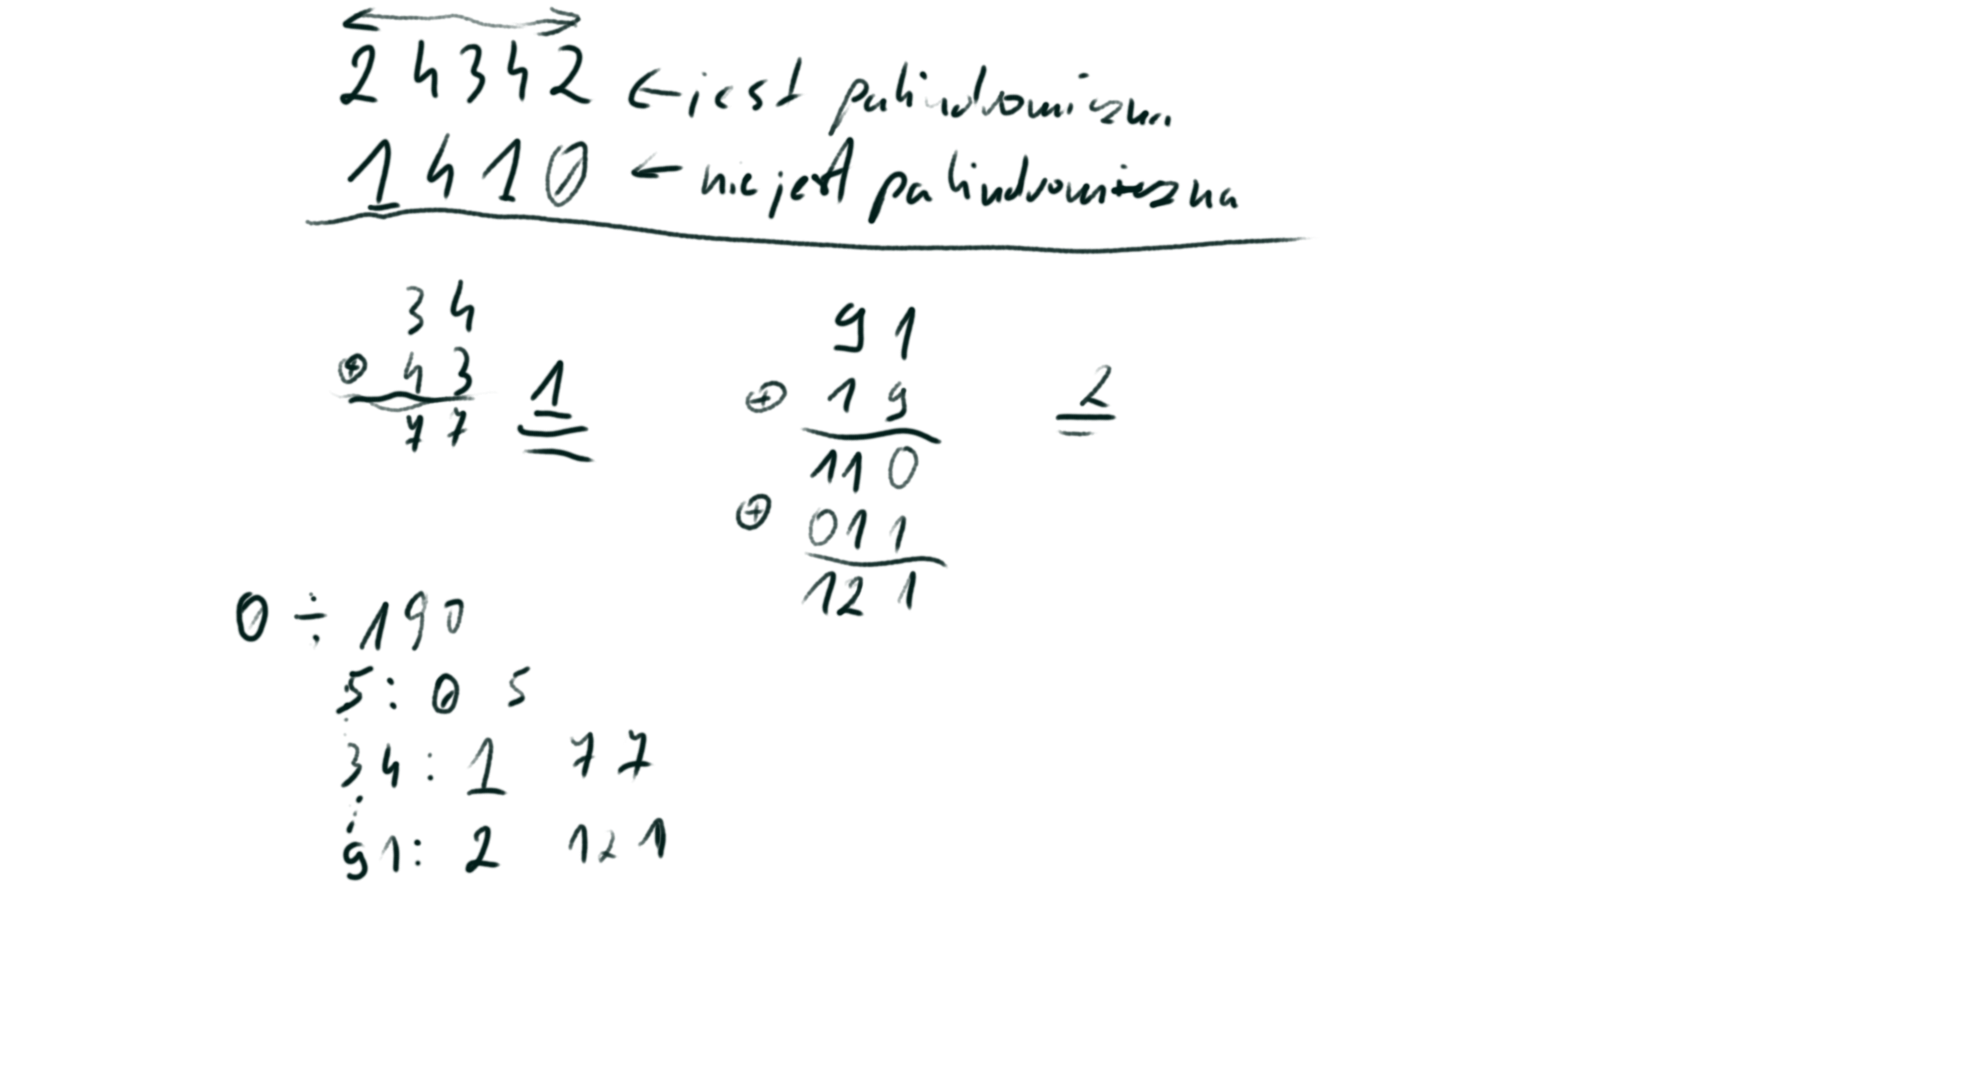 24342 ← jest palindromiczna
1410 ← nie jest palindromiczna
34
⊕ 43
77 1
91
⊕ 19
110 2
⊕ 011
121
0 ÷ 190
5: 0 5
34: 1 77
91: 2 121